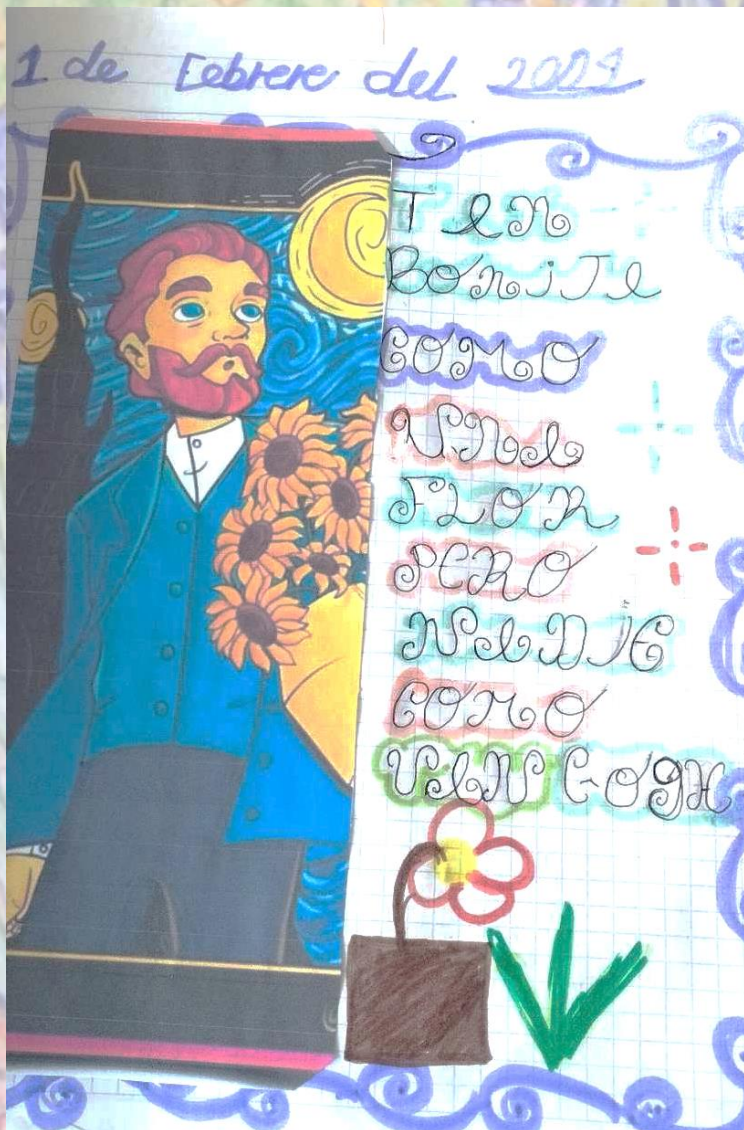 1 de Febrero del
TAN
BONITA
COMO
UNA
FLOR
PERO
NADIE
COMO
VAN GOGH